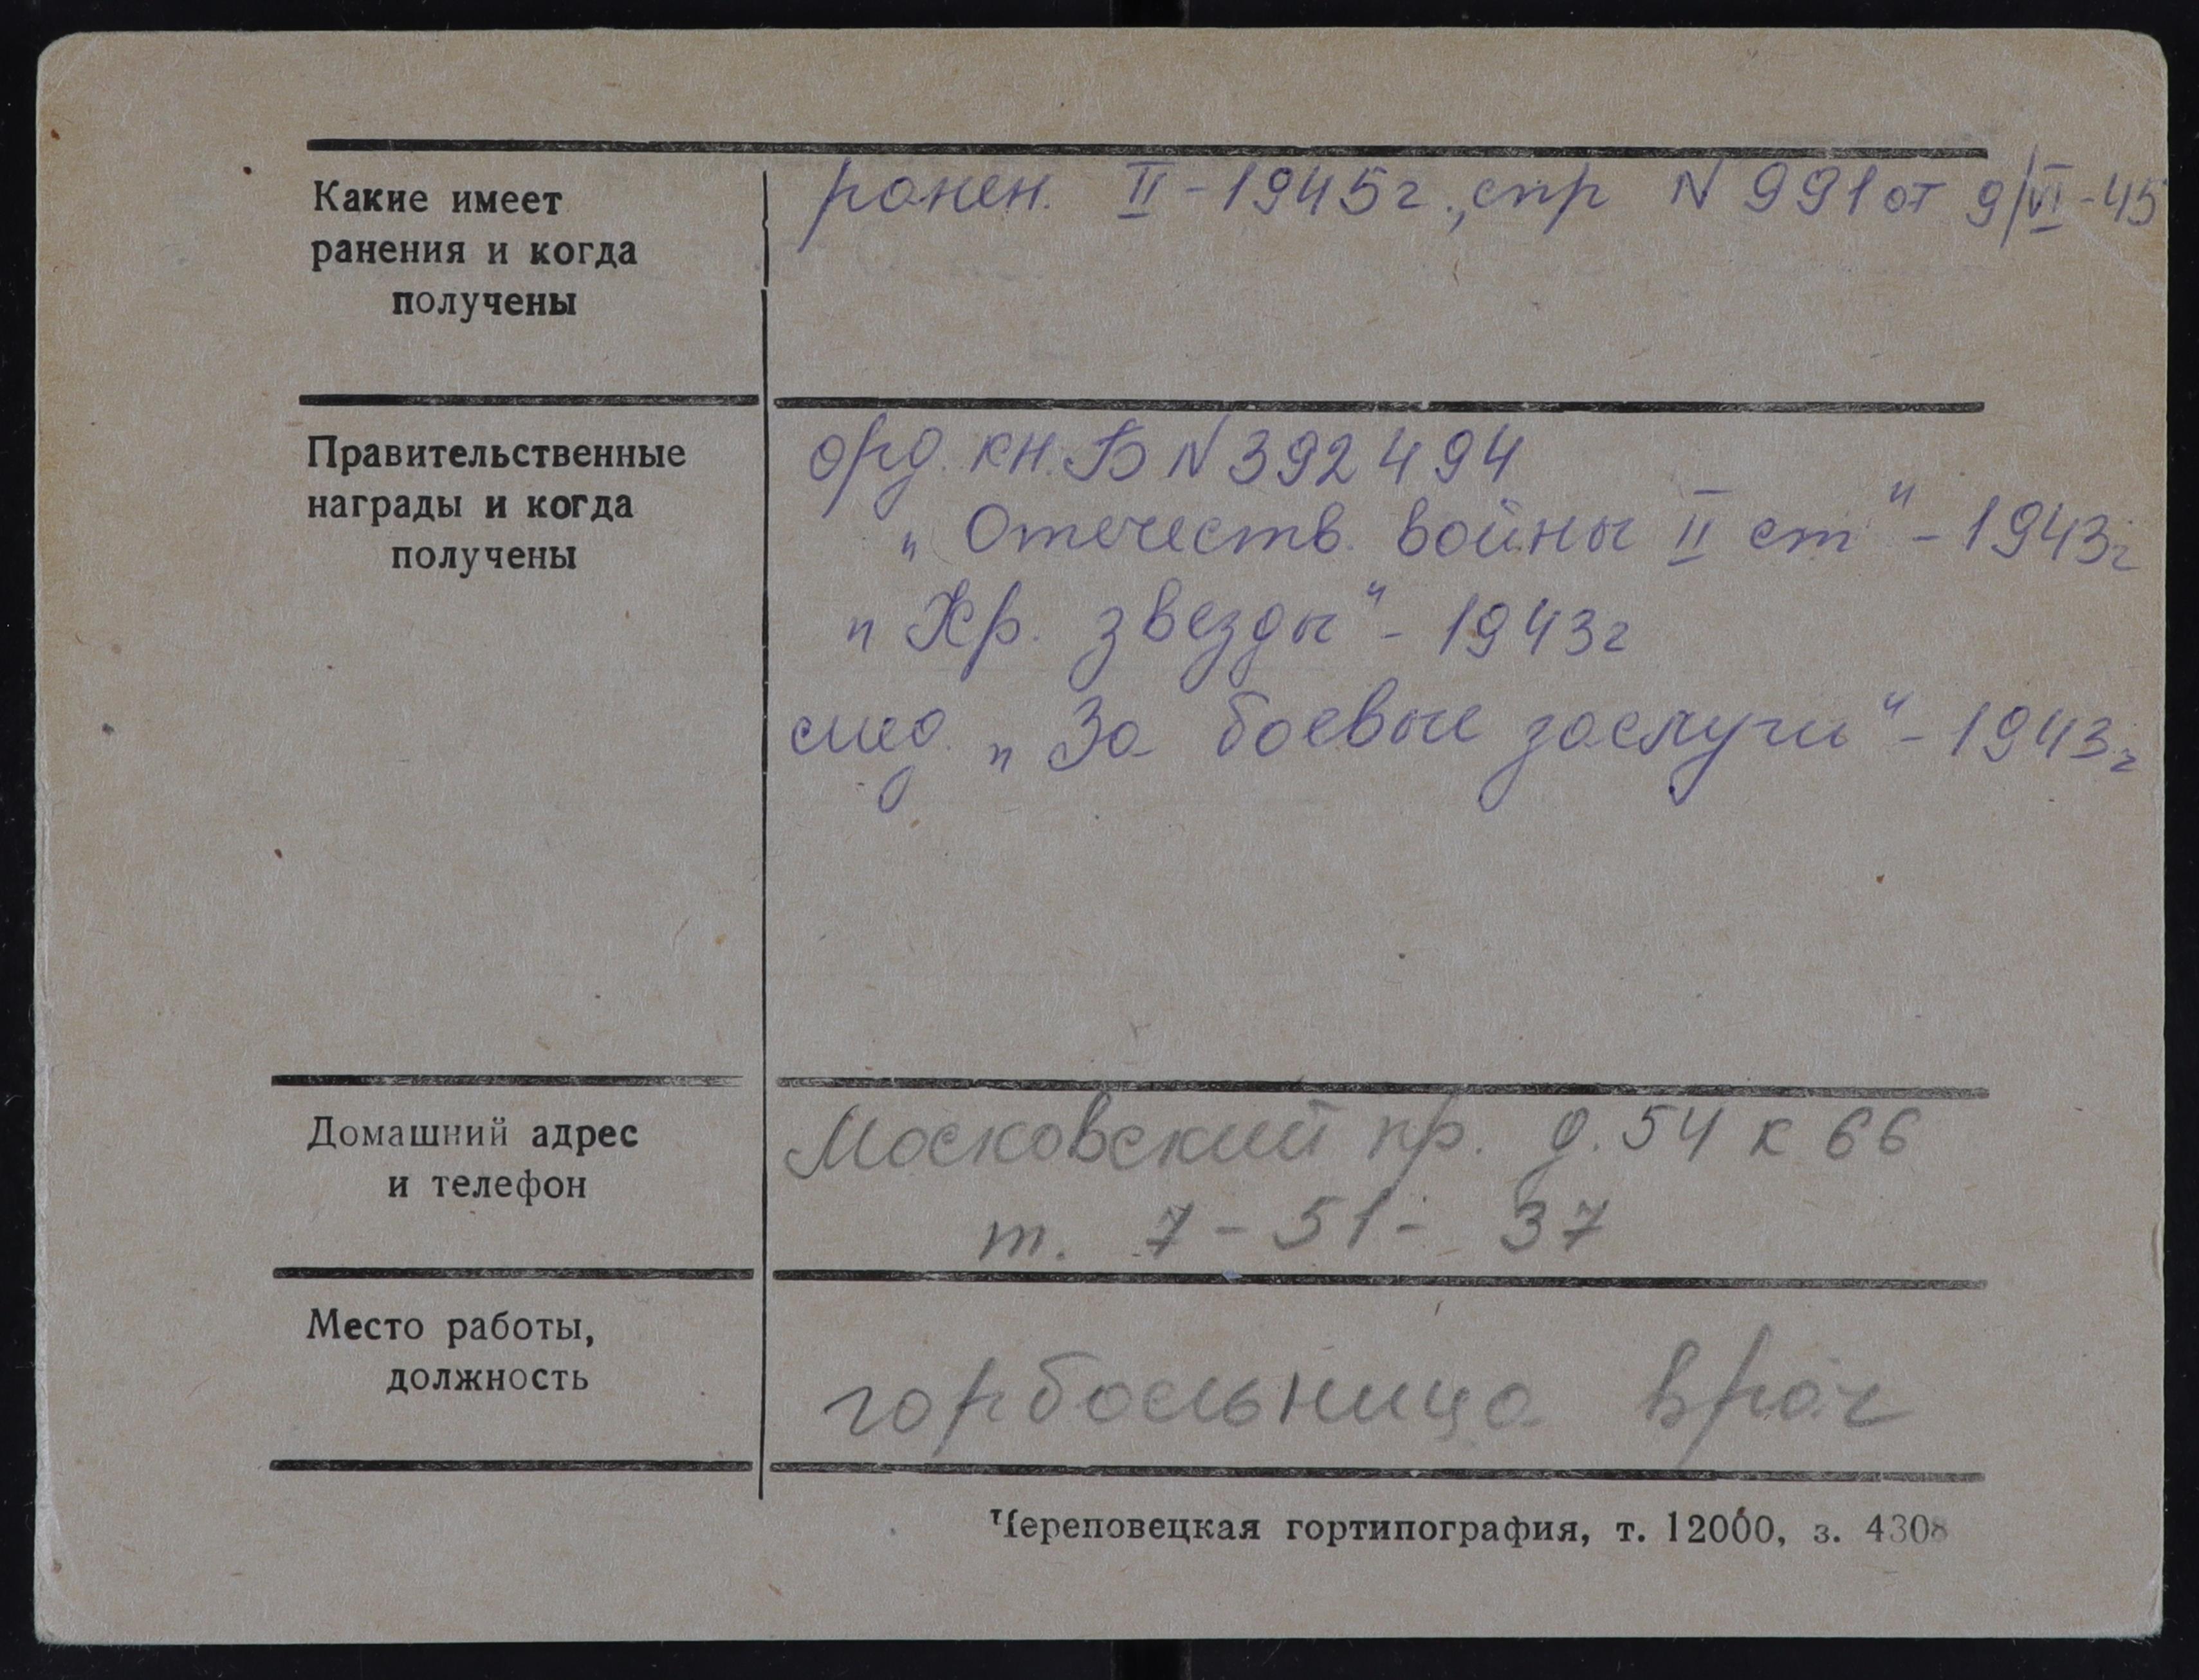 Какие имеет
ранения и когда
получены
ранен. II-1945г., спр N 991 от 9/VI-45
Правительственные
награды и когда
получены
орд. кн. Б N 392494
„Отечеств. войны II ст" - 1943г
„Кр. звезды" - 1943г
мед. „За боевые заслуги" - 1943г
Домашний адрес
и телефон
Московский пр. д. 54 к 66
т. 7-51-37
Место работы,
должность
горбольница врач
Череповецкая гортипография, т. 12000, з. 4308